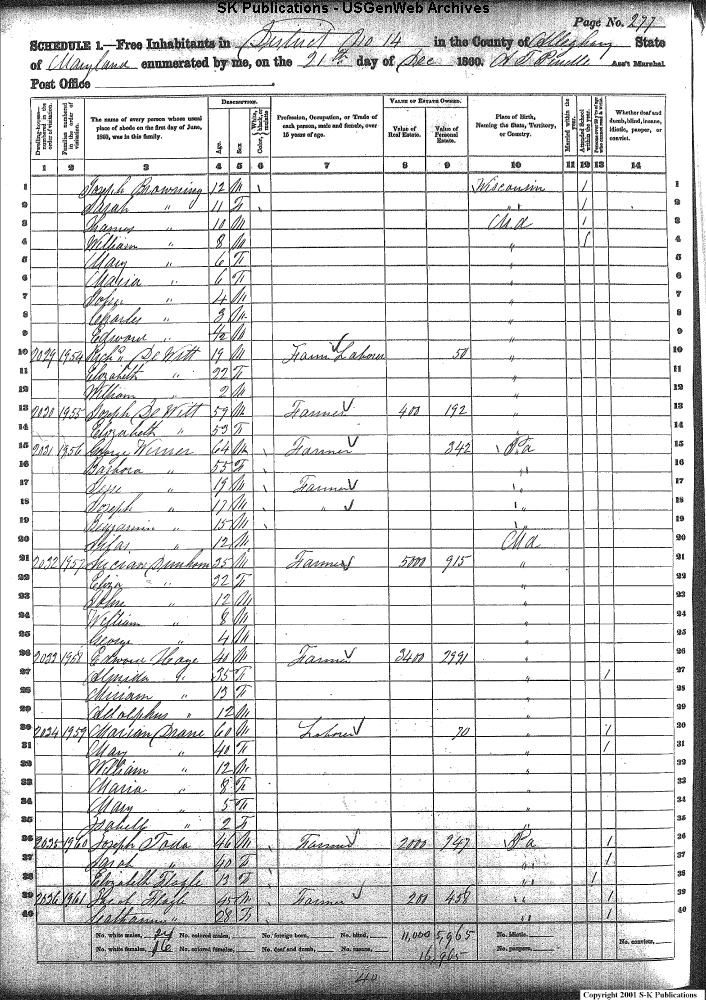 SK Publications - USGenWeb Archives
Page No. 277
SCHEDULE 1.—Free Inhabitants in District No 14 in the County of Alleghany State
of Maryland enumerated by me, on the 21th day of Dec 1860. Ass't Marshal
Post Office
Dwelling-houses—numbered in the order of visitation.
Families numbered in the order of visitation.
The name of every person whose usual place of abode on the first day of June, 1860, was in this family.
DESCRIPTION.
Age.
Sex
Color, White, black, or mulatto
Profession, Occupation, or Trade of each person, male and female, over 15 years of age.
VALUE OF ESTATE OWNED.
Value of Real Estate.
Value of Personal Estate.
Place of Birth, Naming the State, Territory, or Country.
Married within the year.
Attended School within the year.
Whether deaf and dumb, blind, insane, idiotic, pauper, or convict.
1 2 3 4 5 6 7 8 9 10 11 12 13 14
1 Joseph Browning 12 M \ Wisconsin / 1
2 Sarah " 11 F \ " / 2
3 10 M Md / 3
4 William " 8 M " / 4
5 Mary " 6 F " 5
6 Maria " 6 F " 6
7 John " 4 M " 7
8 Charles " 3 M " 8
9 Edward " M " 9
10 2029 1954 Rich'd De Witt 19 M Farm Laborer 50 " 10
11 Elizabeth " 22 F " 11
12 William " 2 M " 12
13 2030 1955 Joseph De Witt 59 M Farmer 400 192 " 13
14 Elizabeth " 53 F " 14
15 2031 1956 George 64 M Farmer 342 Pa 15
16 Barbara " 55 F " 16
17 19 M Farmer " 17
18 Joseph " 17 M " " 18
19 Benjamin " 15 M " 19
20 Silas " 12 M Md 20
21 2032 1957 Dunham 35 M Farmer 5000 915 " 21
22 Eliza " 32 F " 22
23 John " 12 M " 23
24 William " 8 M " 24
25 George " 4 M " 25
26 2033 1958 Edward 40 M Farmer 3400 2991 " 26
27 Almida " 35 F " / 27
28 Miriam " 13 F " 28
29 Adolphus " 12 M " 29
30 2034 1959 Marian Drane 60 M Laborer 70 " / 30
31 Mary " 40 F " / 31
32 William " 12 M " 32
33 Maria " 8 F " 33
34 Mary " 5 F " 34
35 Isabell " 2 F " 35
36 2035 1960 Joseph 46 M Farmer 2000 947 Pa / 36
37 Sarah " 40 F " / 37
38 Elizabeth 13 F " / 38
39 2036 1961 45 M Farmer 200 456 " / 39
40 " 28 F " / 40
No. white males, 24 No. colored males, No. foreign born, No. blind, 11,000 5,965 No. idiotic,
No. white females, 16 No. colored females, No. deaf and dumb, No. insane, 16,965 No. paupers, No. convicts,
40
Copyright 2001 S-K Publications